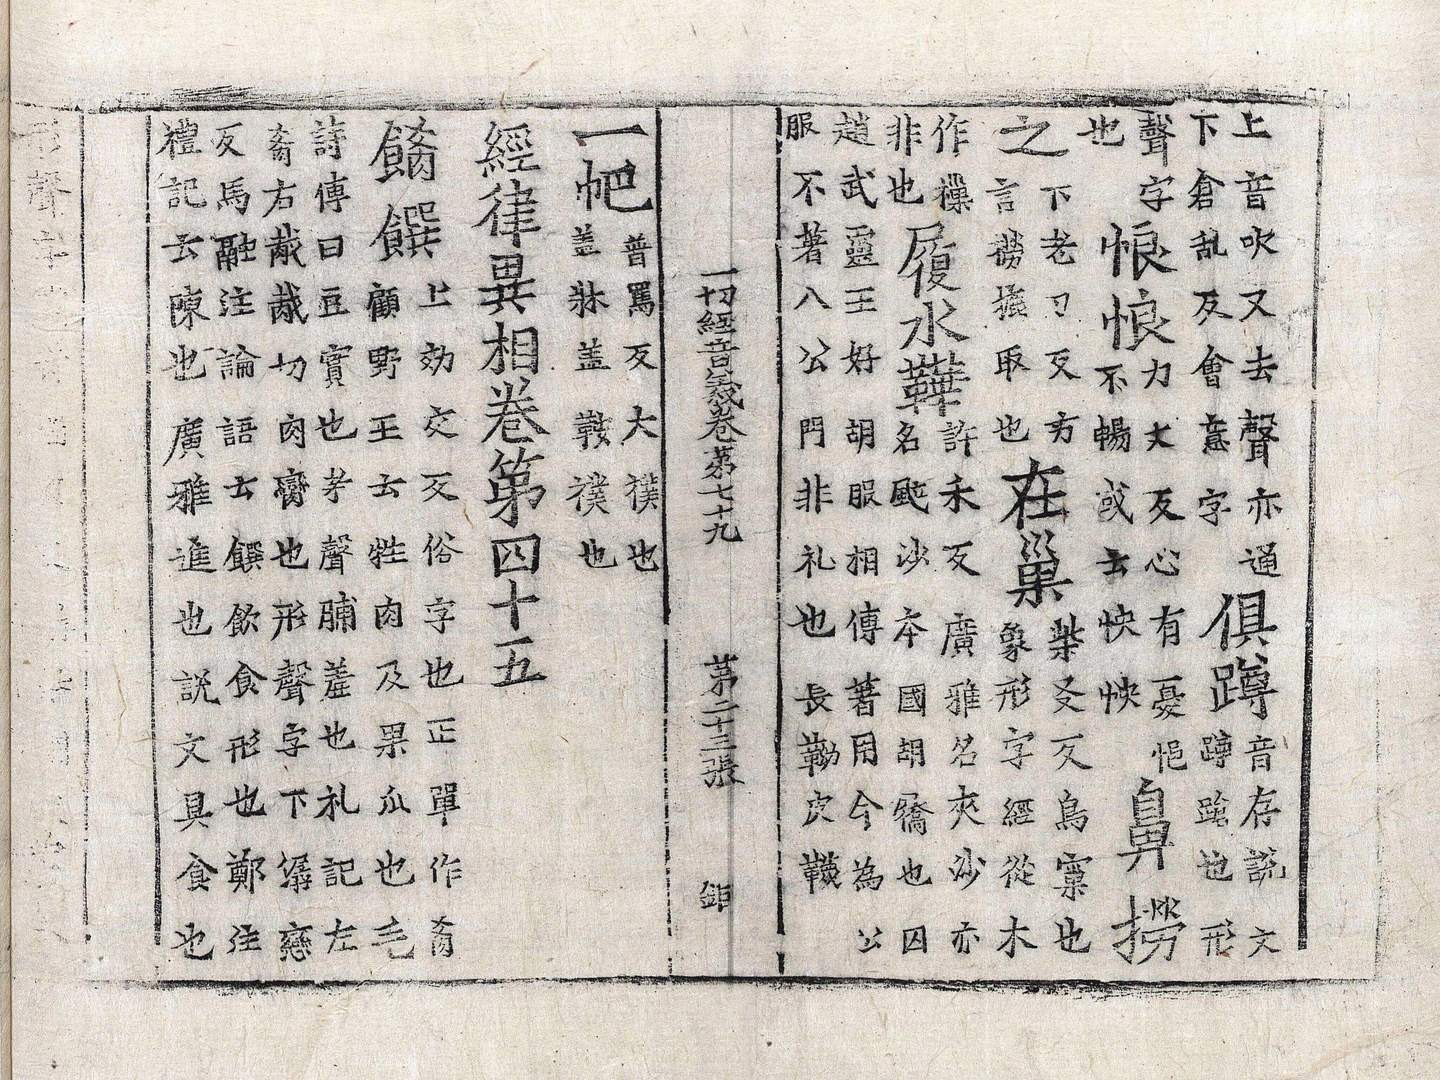 上音吹又去聲亦通下倉乱反會意字俱蹲音存說文蹲踞也形
聲字也悢悢力大反心有憂悒不暢或云怏怏鼻撈
之下老刀反方言撈摝取也在巢柴爻反鳥窠也象形字經從木
作樔非也履水鞾許禾反廣雅名夾沙亦名沙本國胡屩也囚
趙武靈王好胡服相傳著用今為公服不著入公門非礼也長靿皮鞾
一切經音義卷第七十九 第二十三張 鉅
一帊普罵反大襆也盖牀盖鞍襆也
經律異相卷第四十五
餚饌上効交反俗字也正單作肴顧野王云牲肉及果瓜也毛
詩傳曰豆實也考聲脯羞也礼記左肴右胾胾切肉臠也形聲字下潺戀
反馬融注論語云饌飲食形也鄭注禮記云陳也廣雅進也説文具食也